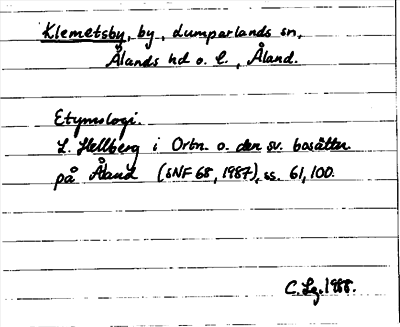 Klemetsby, by, Lumparlands sn,
Ålands hd o. l., Åland.
Etymologi.
L. Hellberg i Ortn. o. den sv. bosättn.
på Åland (SNF 68, 1987), ss. 61, 100.
C. Lg. 1988.